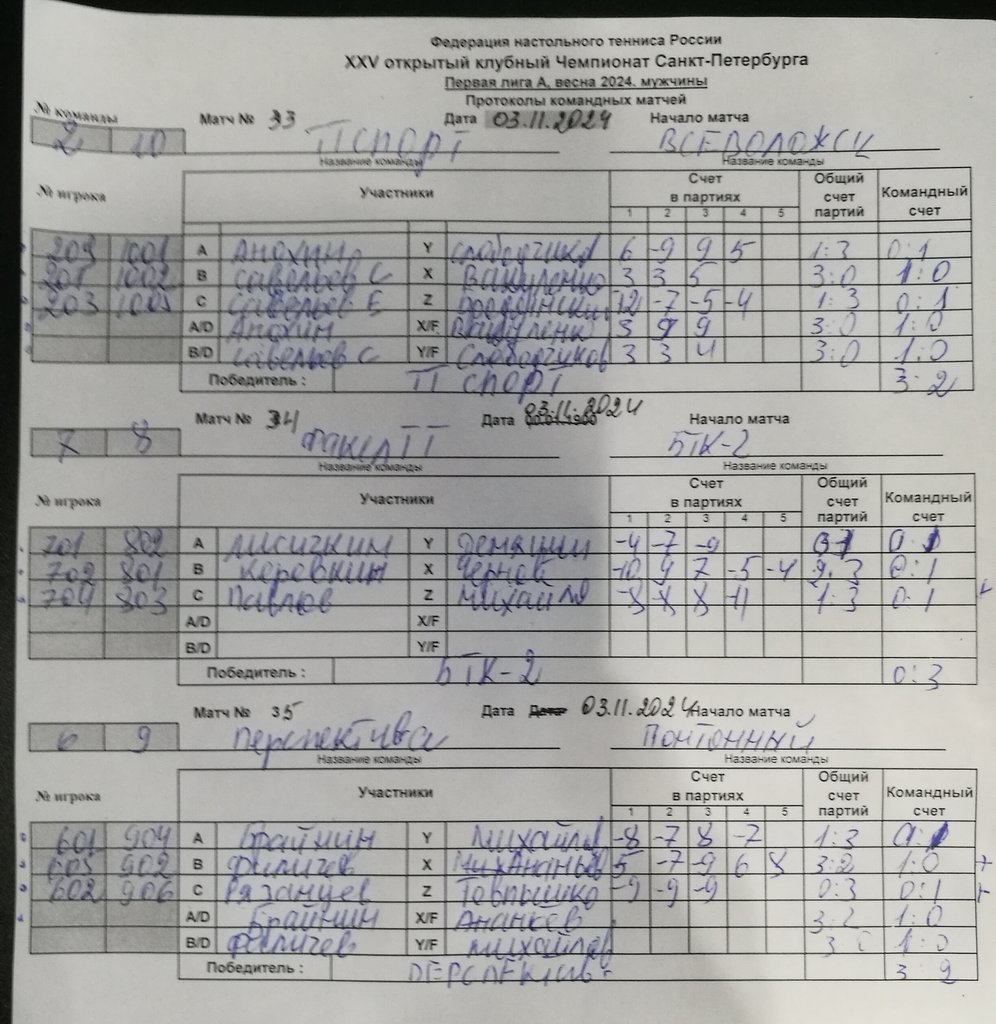 Федерация настольного тенниса России
XXV открытый клубный Чемпионат Санкт-Петербурга
Первая лига А, весна 2024. мужчины
Протоколы командных матчей
№ команды Матч № 33 Дата 03.11.2024 Начало матча
2 10 ТТ СПОРТ ВСЕВОЛОЖСК
Название команды Название команды
№ игрока Участники Счет в партиях Общий счет партий Командный счет
1 2 3 4 5
1001 A Анохин Y Слободчиков 6 -9 9 5 1:3 0:1
201 1002 B Савельев С X Вакуленко 3 3 5 3:0 1:0
203 1003 C Савельев Е Z -12 -7 -5 -4 1:3 0:1
A/D Анохин X/F Вакуленко 3 9 9 3:0 1:0
B/D Савельев С Y/F Слободчиков 3 3 4 3:0 1:0
Победитель : ТТ СПОРТ 3:2
Матч № 34 Дата 00.01.1900 03.11.2024 Начало матча
7 8 Факел ТТ БТК-2
Название команды Название команды
№ игрока Участники Счет в партиях Общий счет партий Командный счет
1 2 3 4 5
701 802 A Лисичкин Y -4 -7 -9 0:1
702 801 B Коровкин X Черной -10 9 7 -5 -4 2:3 0:1
704 803 C Павлов Z Михайлов -8 8 -11 1:3 0:1
A/D X/F
B/D Y/F
Победитель : БТК-2 0:3
Матч № 35 Дата 03.11.2024 Начало матча
6 9 Перспектива Понтонный
Название команды Название команды
№ игрока Участники Счет в партиях Общий счет партий Командный счет
1 2 3 4 5
601 904 A Брайнин Y Михайлов -8 -7 8 -7 1:3 0:1
603 902 B Филичев X Ананьев 5 -7 -9 6 8 3:2 1:0
602 906 C Рязанцев Z Товпышко -9 -9 -9 0:3 0:1
A/D Брайнин X/F Ананьев 3:2 1:0
B/D Филичев Y/F Михайлов 1:0
Победитель : ПЕРСПЕКТИВА 3:2